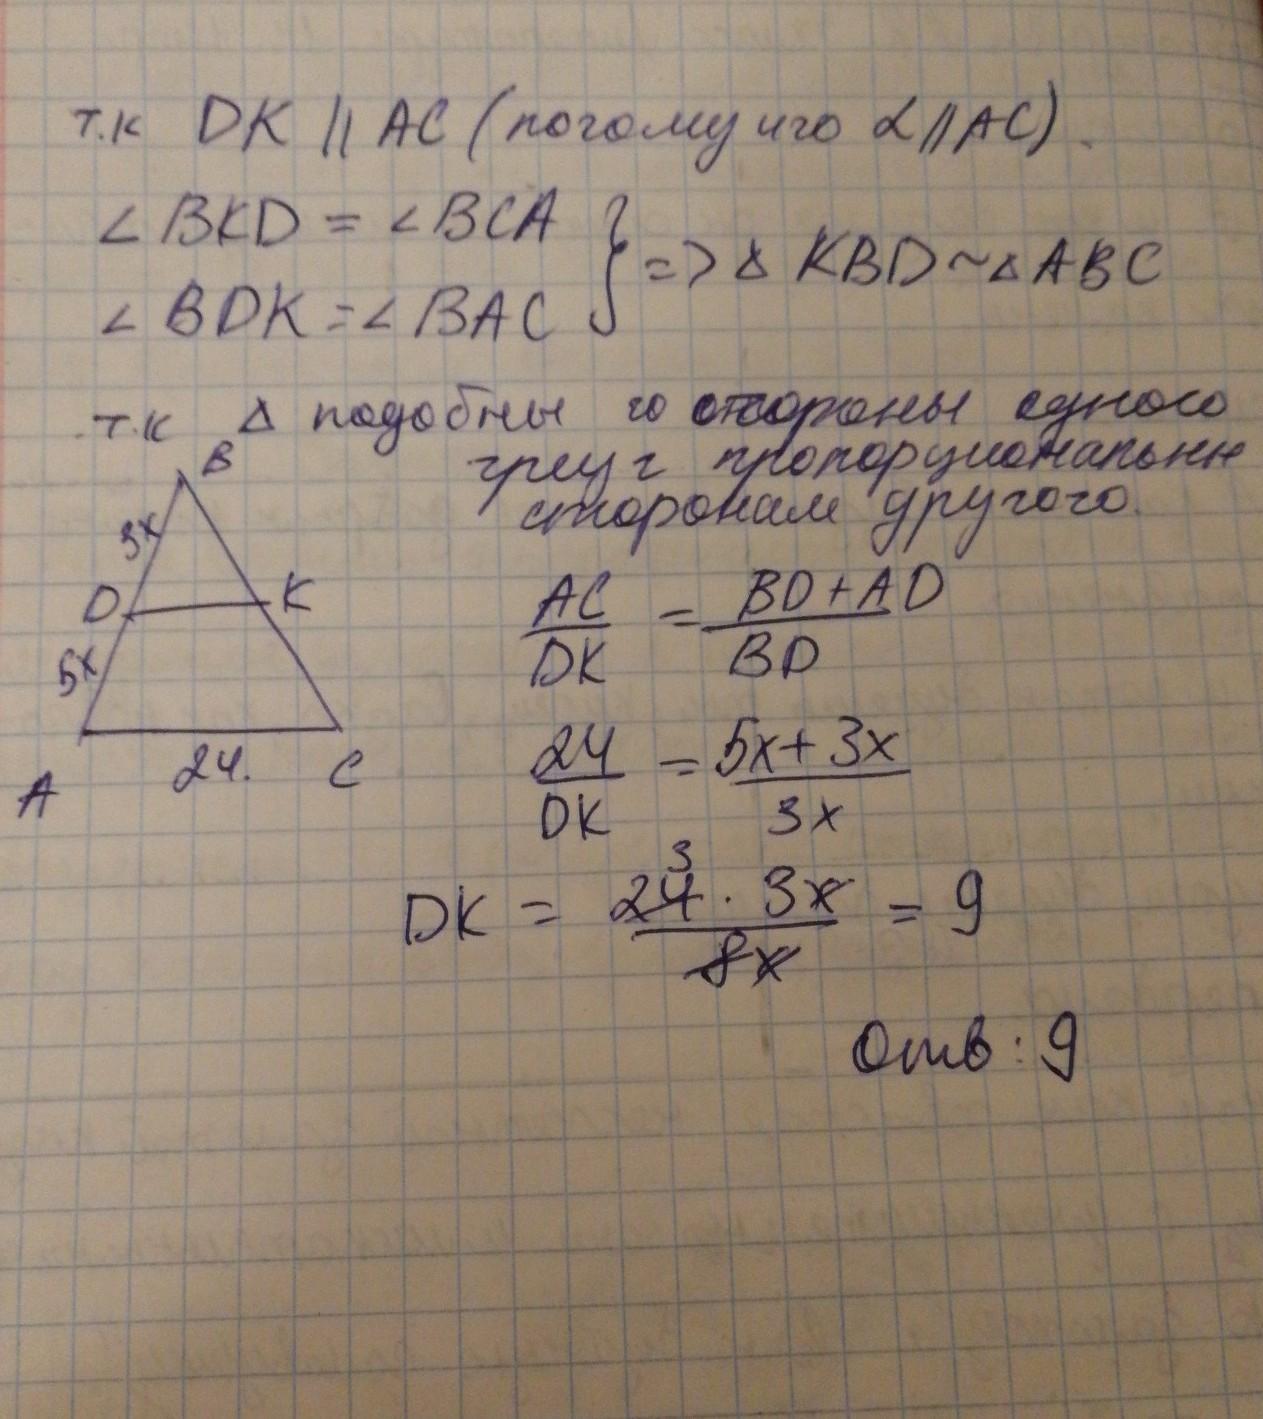 т.к DK || AC (потому что α || AC).
∠BKD = ∠BCA
∠BDK = ∠BAC
} => Δ KBD ~ Δ ABC
т.к Δ подобны то стороны одного
треуг пропорциональны
сторонам другого.
B
3x
D
K
5x
A
24.
C
AC/DK = BD+AD/BD
24/DK = 5x+3x/3x
3
DK = 24 · 3x/8x = 9
Отв: 9